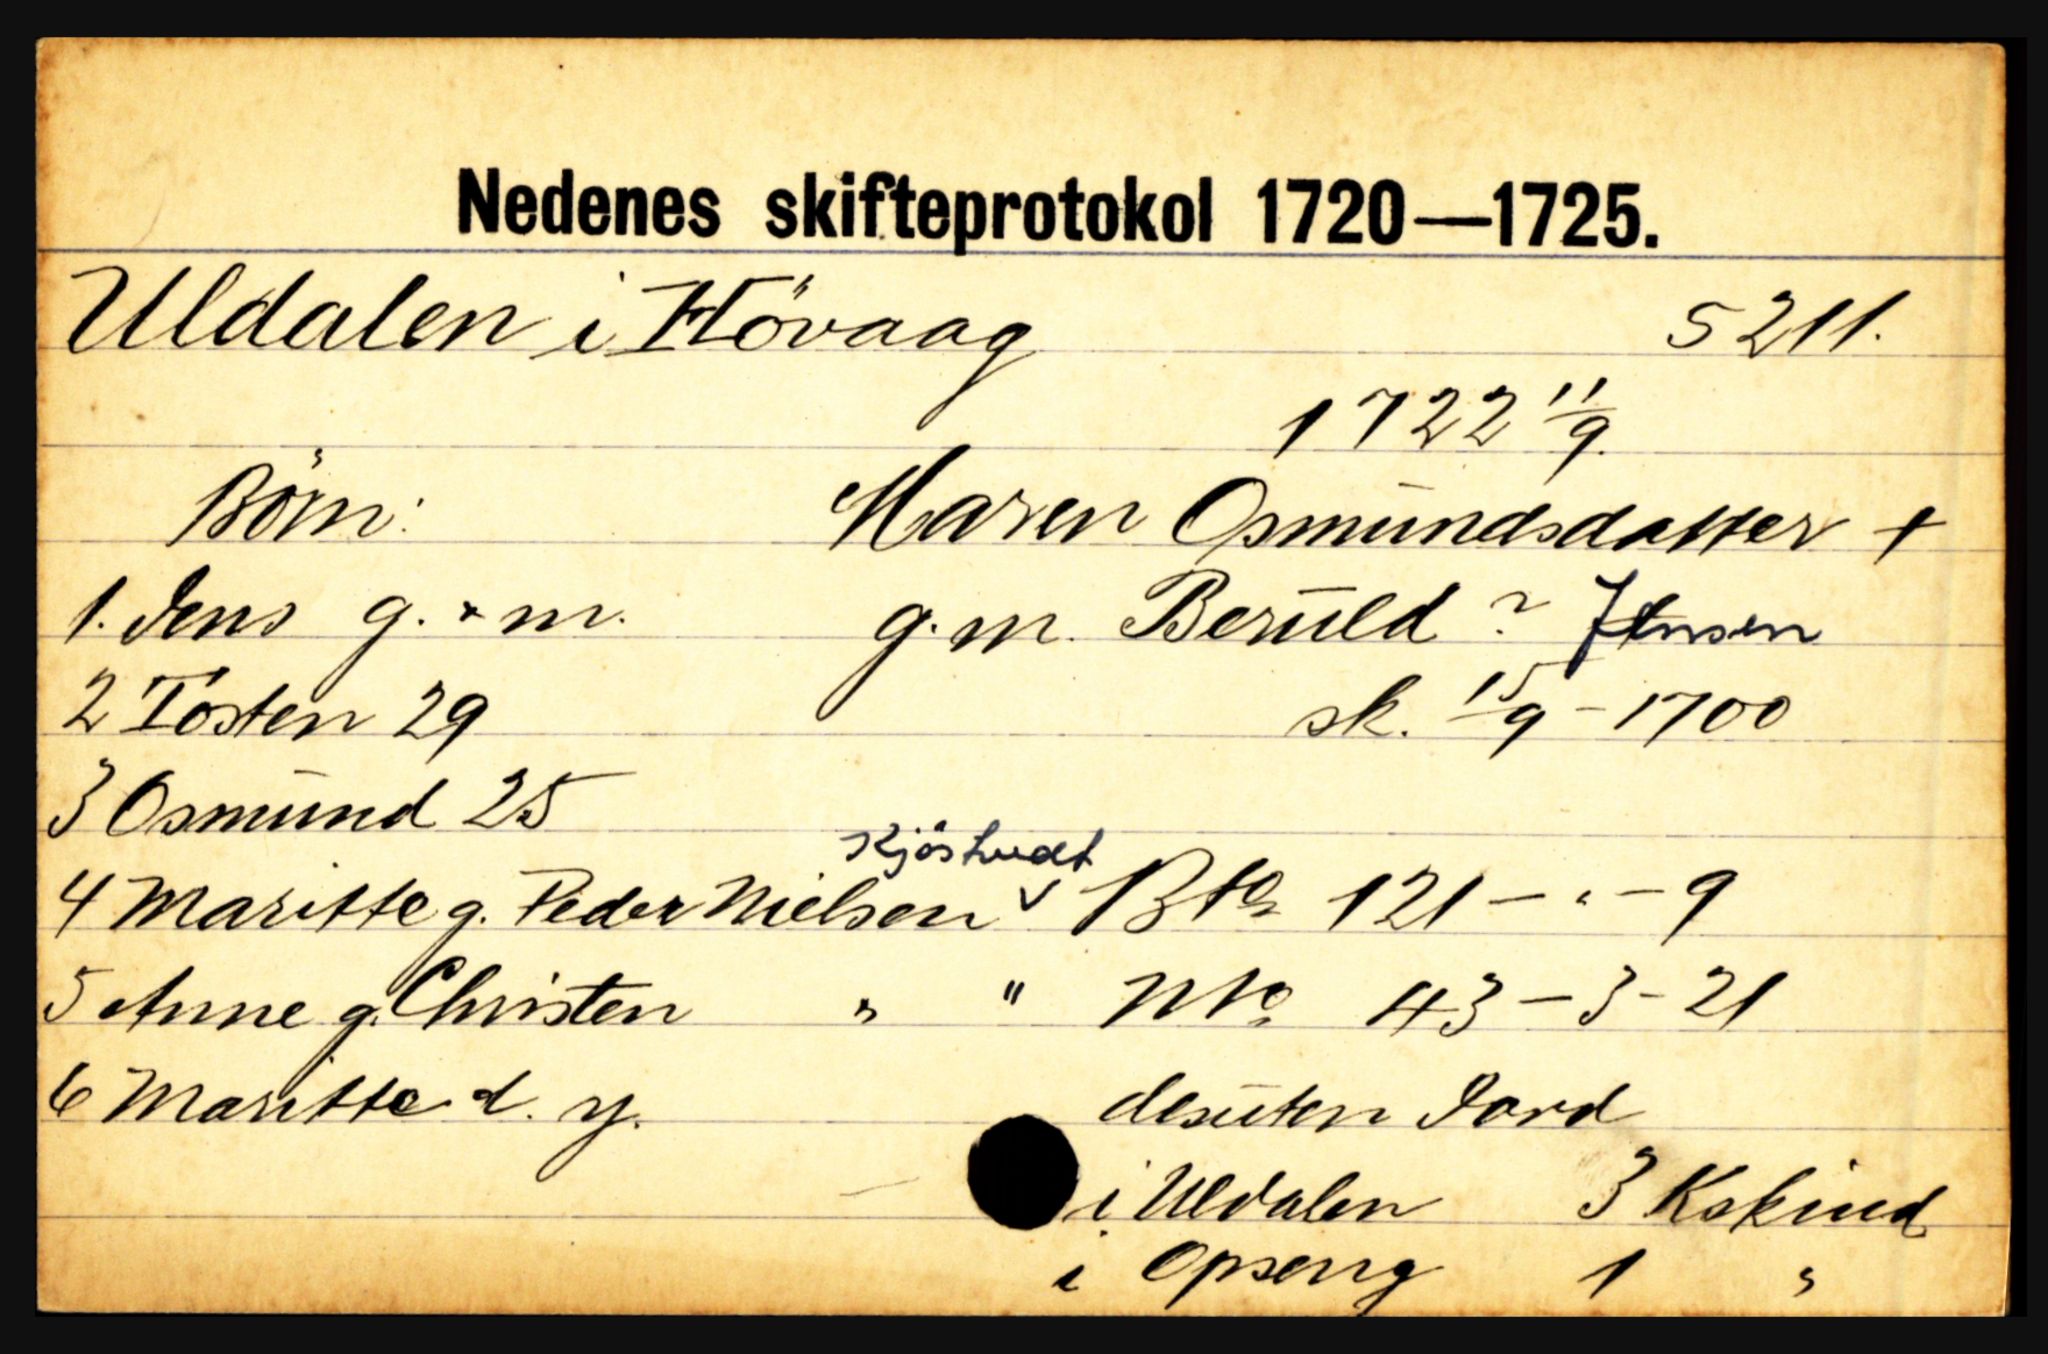 Nedenes skifteprotokol 1720—1725.
Uldalen i Hövaag 5211.
1722 11/9.
Börn: Maren Osmundsdatter +
1. Jens g. & m. g.m. Beruld ? Jensen
2 Tosten 29 sk. 15/9 - 1700
3 Osmund 25
Kjöstvedt
4 Maritte g. Peder Nielsen v Btō 121 - " - 9
5 Anne g. Christen " " Ntō 43 - 3 - 21
6 Maritte d. y. desuten Jord
i Uldalen 3 Kskind
i Opseng 1 "